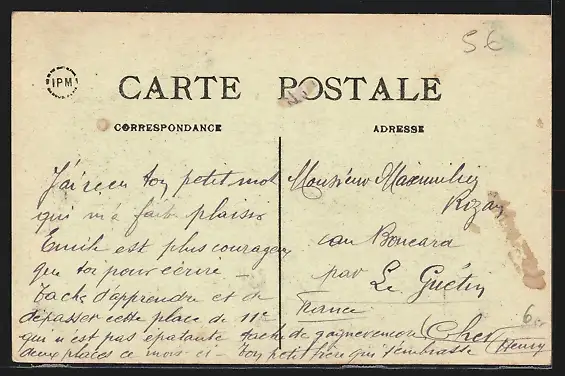 5 €
IPM
CARTE POSTALE
CORRESPONDANCE
ADRESSE
J'ai reçu ton petit mot
qui m'a fait plaisir
Emile est plus courageux
que toi pour écrire –
Tache d'apprendre et de
dépasser cette place de 11e
qui n'est pas épatante tache de gagner encore
deux places ce mois-ci – Ton petit frère qui t'embrasse Henry
Monsieur Maximilien
Rizan
au Boucard
par Le Guétin
France
(Cher)
6